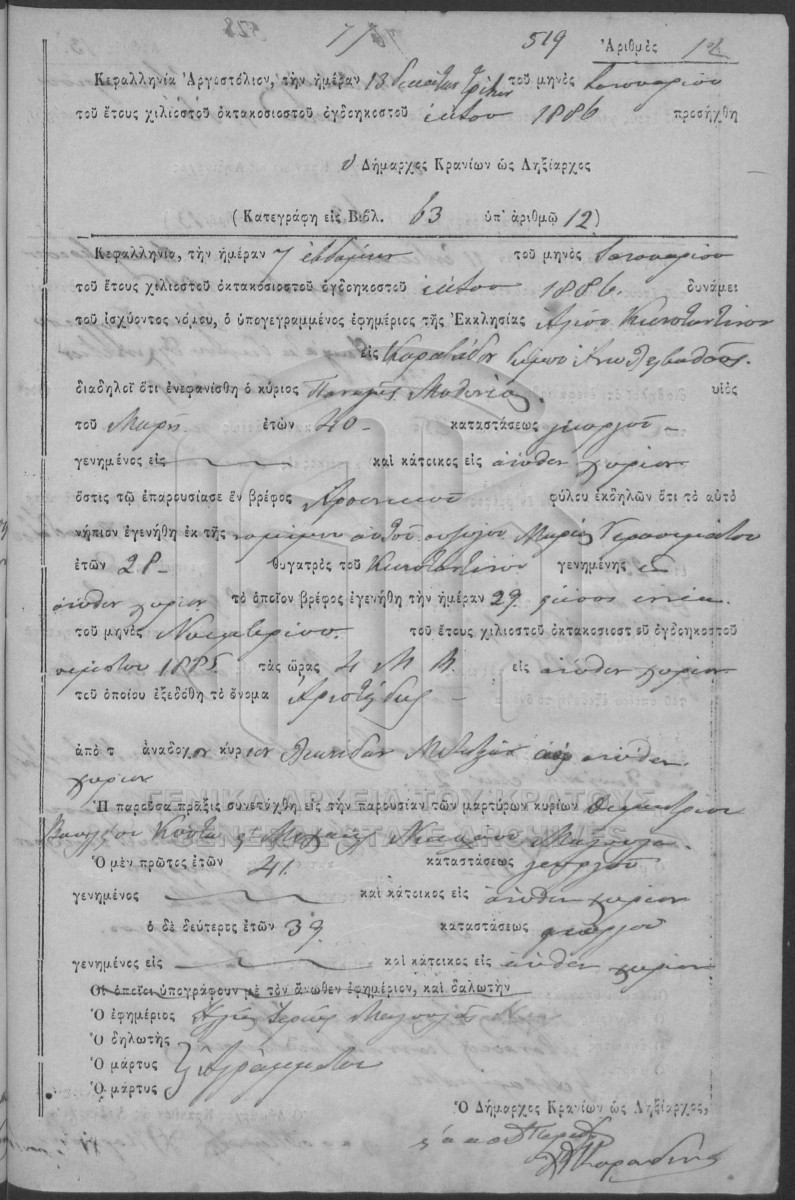 519 Ἀριθμὸς 12
Κεφαλληνία Ἀργοστόλιον, τὴν ἡμέραν 13 δεκάτην τρίτην τοῦ μηνὸς Ἰανουαρίου
τοῦ ἔτους χιλιοστοῦ ὀκτακοσιοστοῦ ὀγδοηκοστοῦ ἕκτου 1886 προσήχθη
ὁ Δήμαρχος Κρανίων ὡς Ληξίαρχος
(Κατεγράφη εἰς Βιβλ. 63 ὑπ' ἀριθμῷ 12)
Κεφαλληνία, τὴν ἡμέραν 7 ἑβδόμην τοῦ μηνὸς Ἰανουαρίου
τοῦ ἔτους χιλιοστοῦ ὀκτακοσιοστοῦ ὀγδοηκοστοῦ ἕκτου 1886. δυνάμει
τοῦ ἰσχύοντος νόμου, ὁ ὑπογεγραμμένος ἐφημέριος τῆς Ἐκκλησίας Ἁγίου Κωνσταντίνου
εἰς Καραβάδον
διαδηλοῖ ὅτι ἐνεφανίσθη ὁ κύριος Παναγῆς υἱὸς
τοῦ Μαρῆ ἐτῶν 40 καταστάσεως γεωργοῦ
γενημένος εἰς καὶ κάτοικος εἰς ἄνωθεν χωρίον
ὅστις τῷ ἐπαρουσίασε ἓν βρέφος Ἀρσενικοῦ φύλου ἐκδηλῶν ὅτι τὸ αὐτὸ
νήπιον ἐγενήθη ἐκ τῆς νομίμου αὐτοῦ συζύγου Μαρίας Γερασιμάτου
ἐτῶν 28 θυγατρὸς τοῦ Κωνσταντίνου γενημένης εἰς
ἄνωθεν χωρίον τὸ ὁποῖον βρέφος ἐγενήθη τὴν ἡμέραν 29 εἴκοσι ἐννέα
τοῦ μηνὸς Νοεμβρίου τοῦ ἔτους χιλιοστοῦ ὀκτακοσιοστοῦ ὀγδοηκοστοῦ
πέμπτου 1885 τὰς ὥρας 4 Μ. Μ. εἰς ἄνωθεν χωρίον
τοῦ ὁποίου ἐξεδόθη τὸ ὄνομα Ἀριστείδης
ἀπὸ τ ἀνάδοχον κύριον Λεωνίδαν ἄνωθεν
χωρίον
Ἡ παροῦσα πρᾶξις συνετάχθη εἰς τὴν παρουσίαν τῶν μαρτύρων κυρίων Δημητρίου
ΓΕΝΙΚΑ ΑΡΧΕΙΑ ΤΟΥ ΚΡΑΤΟΥΣ
GENERAL STATE ARCHIVES
Ὁ μὲν πρῶτος ἐτῶν 41 καταστάσεως γεωργοῦ
γενημένος καὶ κάτοικος εἰς ἄνωθεν χωρίον
ὁ δὲ δεύτερος ἐτῶν 39 καταστάσεως γεωργοῦ
γενημένος εἰς καὶ κάτοικος εἰς ἄνωθεν χωρίον
Οἱ ὁποῖοι ὑπογράφουν μὲ τὸν ἄνωθεν ἐφημέριον, καὶ δηλωτὴν
Ὁ ἐφημέριος
Ὁ δηλωτὴς
Ὁ μάρτυς Ἀγράμματοι
Ὁ μάρτυς
Ὁ Δήμαρχος Κρανίων ὡς Ληξίαρχος,